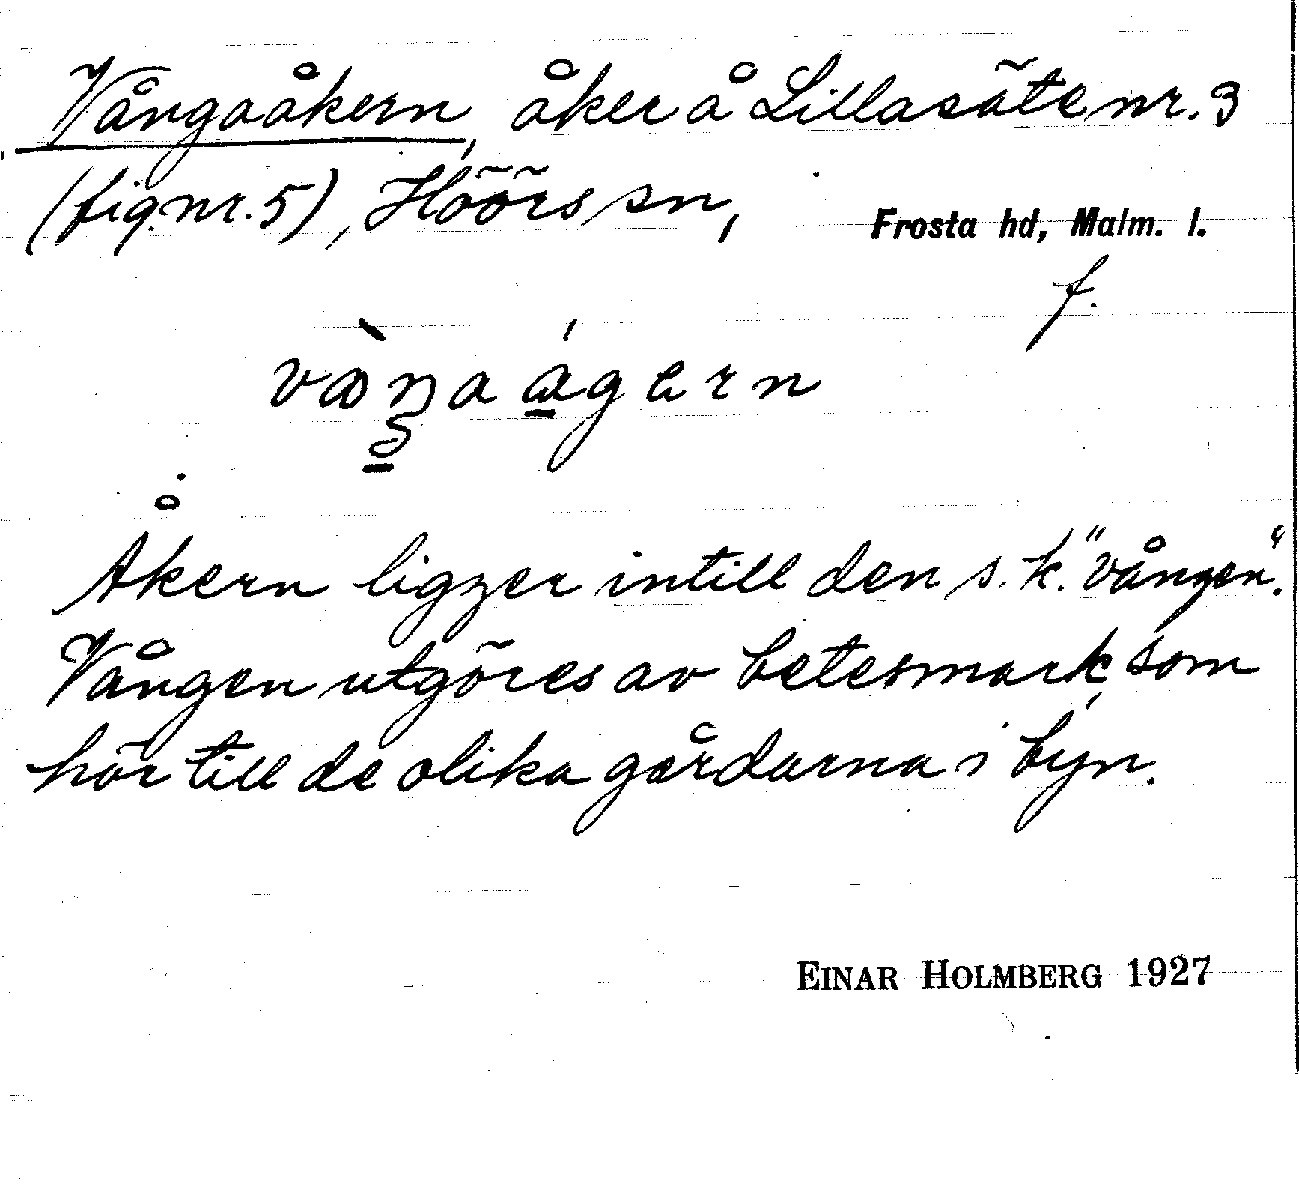 Vångaåkern, åker å Lillasäte nr. 3
(fig. nr. 5), Höörs sn, Frosta hd, Malm. l.
f.
vàŋaágern
Åkern ligger intill den s.k. "vången".
Vången utgöres av betesmark, som
hör till de olika gårdarna i byn.
EINAR HOLMBERG 1927